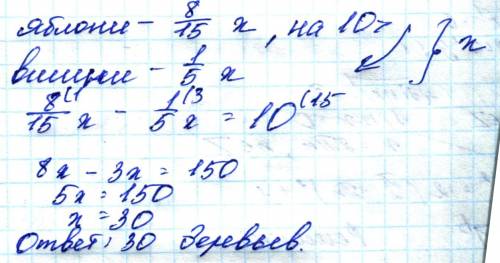 яблони - 8/15 x, на 10 >
вишни - 1/5 x } x
8/15 (1 x - 1/5 (3 x = 10 (15
8x - 3x = 150
5x = 150
x = 30
Ответ: 30 деревьев.